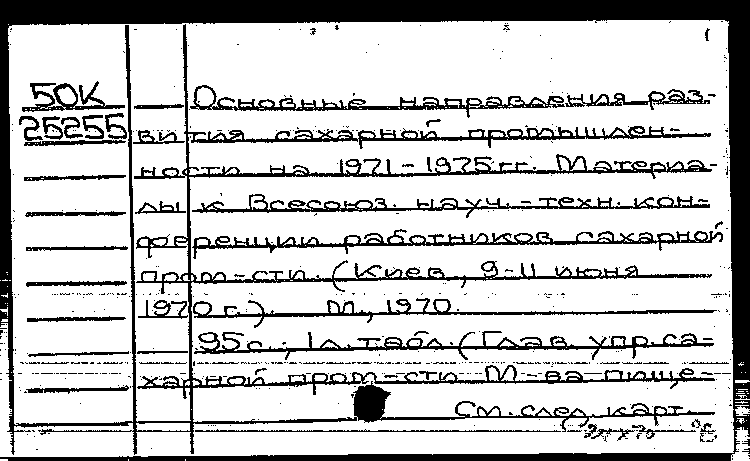 50К Основные направления раз-
25255 вития сахарной промышлен-
ности на 1971-1975 гг. Материа-
лы к Всесоюз. науч.-техн. кон-
ференции работников сахарной
пром-сти. (Киев, 9-11 июня
1970 г.). М., 1970.
95 с.; 1 л. табл. (Глав. упр. са-
харной пром-сти М-ва пище-
См. след. карт.